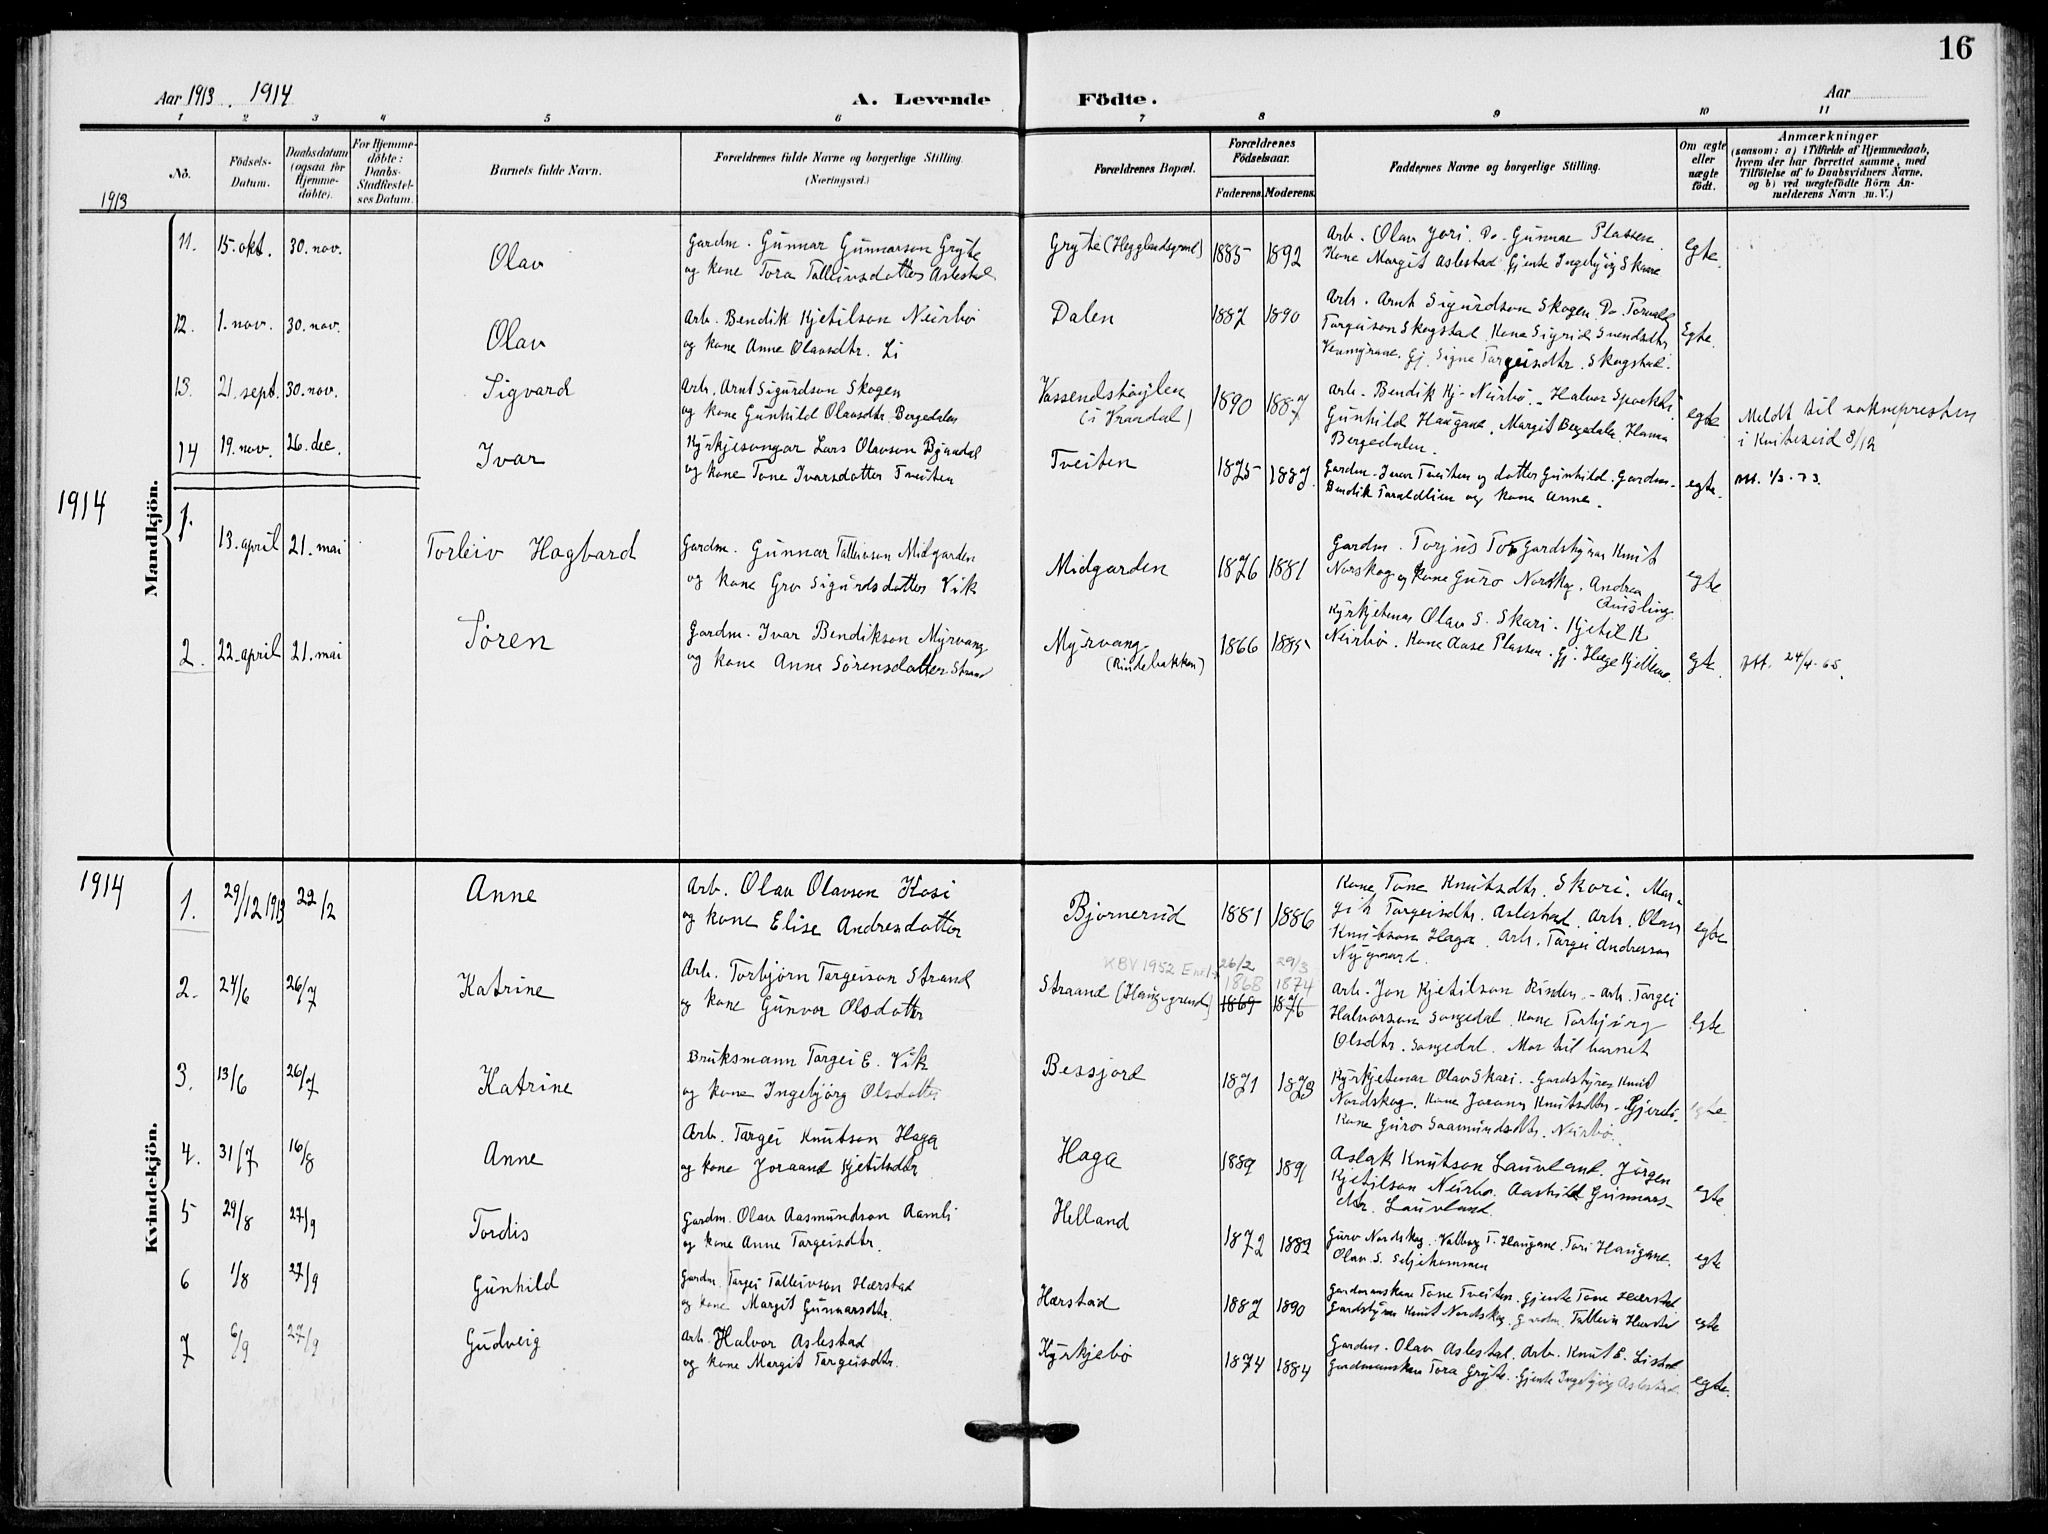 16
Aar 1913. 1914
A. Levende Födte.
Aar
1 2 3 4 5 6 7 8 9 10 11
No.
Födsels-Datum.
Daabsdatum (ogsaa for Hjemme-döbte).
For Hjemme-döbte: Daabs-Stadfæstelses Datum.
Barnets fulde Navn.
Forældrenes fulde Navne og borgerlige Stilling.
(Næringsvei.)
Forældrenes Bopæl.
Forældrenes Födselsaar.
Faderens. Moderens.
Faddernes Navne og borgerlige Stilling.
Om ægte eller uægte födt.
Anmærkninger
(saasom: a) i Tilfælde af Hjemmedaab, hvem der har forrettet samme, med Tilföielse af to Daabsvidners Navne, og b) ved uægtefödte Börn Anmelderens Navn m. V.)
1913
Mandkjön.
11. 15. okt. 30. nov. Olav
Gardm. Gunnar Gunnarson Gryte
og kone Tora Talleivsdotter Aslestad
Gryte (Hegglandsgrend) 1885 1892
Arb. Olav Jori. Do. Gunnar Plassen.
Kone Margit Aslestad. Gjente Ingebjörg Skare
Egte.
12. 1. nov. 30. nov. Olav
Arb. Bendik Kjetilson Neirbö
og kone Anne Olavsdtr. Li
Dalen 1887 1890
Arb. Arnt Sigurdson Skogen. Do. Torvald
Targeison Skogstad. Kone Sigrid Svendsdtr
Venmyrane. Gj. Signe Targeisdtr. Skogstad.
Egte.
13. 21. sept. 30. nov. Sigvard
Arb. Arnt Sigurdson Skogen
og kone Gunhild Olavsdtr. Bergedalen
Vassendshöylen
(i Vraadal) 1890 1887
Arb. Bendik Kj. Neirbö. Halvor
Gunhild Haugane, Margit Bergedalen, Hanna
Bergedalen.
egte
Meldt til soknepresten
i Kviteseid 8/12
14 19. nov. 26. dec. Ivar
Kyrkjesongar Lars Olavson Bjaadal
og kone Tone Ivarsdotter Tveiten
Tveiten 1875 1887.
Gardm. Ivar Tveiten og dotter Gunhild. Gardm.
Bendik Taraldlien og kone Anne.
egte.
Att. 1/3-73.
1914
1. 13. april 21. mai Torleiv Hagbard
Gardm. Gunnar Talleivson Midgarden
og kone Gro Sigurdsdotter Vik
Midgarden 1876 1881
Gardm. Torjus To Gardstyrar Knut
Norskog og kone Guro Norskog. Andrea
Quisling.
egte
2. 22. april 21. mai Sören
Gardm. Ivar Bendikson Myrvang
og kone Anne Sörensdotter Strand
Myrvang
(Rindebakken) 1866 1885
Kyrkjetenar Olav S. Skari. Kjetil K
Neirbö. Kone Aase Plassen. Gj. Hæge Kjetleme.
egte.
Att. 24/4-65.
1914
Kvindekjön.
1. 29/12 1913 22/2 Anne
Arb. Olav Olavson Kosi
og kone Elise Andresdotter
Bjornerud 1881 1886
Kone Tone Knutsdtr. Skori. Mar-
git Targeisdtr. Aslestad. Arb. Olav
Knutson Haga. Arb. Targei Andresson
Nygaard.
egte
2. 24/6 26/7 Katrine
Arb. Torbjörn Targeison Strand
og kone Gunvor Olsdotter
KBV 1952
Straand (Haugegrend)
26/2 1868 29/3 1874
1869 1876
Arb. Jon Kjetilson Rinden. - Arb. Targei
Halvorson Songedal. Kone Torbjörg
Olsdtr. Songedal. Mor til barnet
Egte
3. 13/6 26/7 Katrine
Bruksmann Targei E. Vik
og kone Ingebjörg Olsdotter
Bessjord 1871 1873
Kyrkjetenar Olav Skari. - Gardstyrar Knut
Nordskog. Kone Jorann Knutsdtr.
Kone Guro Saamundsdtr. Neirbö.
egte.
4. 31/7 16/8 Anne
Arb. Targei Knutson Haga
og kone Joraand Kjetilsdtr
Haga 1889 1891
Aslak Knutson Lauvland. Jörgen
Kjetilson Neirbö. Aashild Gunnars-
dtr. Lauvland.
egte
5 29/8 27/9 Tordis
Gardm. Olav Aasmundson Aamli
og kone Anne Targeisdtr.
Helland 1872 1882
Guro Nordskog. Valborg T. Haugane. Tori Haugane.
Olav S. Seljehommen
egte
6 1/8 27/9 Gunhild
Gardm. Targei Talleivson Hærstad
og kone Margit Gunnarsdtr.
Hærstad 1887 1890
Gardmannskone Tone Tveiten. Gjente Tone Hærstad
Gardstyrar Knut Nordskog. Gardm. Talleiv Hærstad
egte
7 6/9 27/9 Gudveig
Arb. Halvor Aslestad
og kone Margit Targeisdtr.
Kyrkjebö 1874 1884
Gardm. Olav Aslestad. Arb. Knut E. Listad
Gardmannskone Tora Gryte. Gjente Ingebjörg Aslestad.
egte.